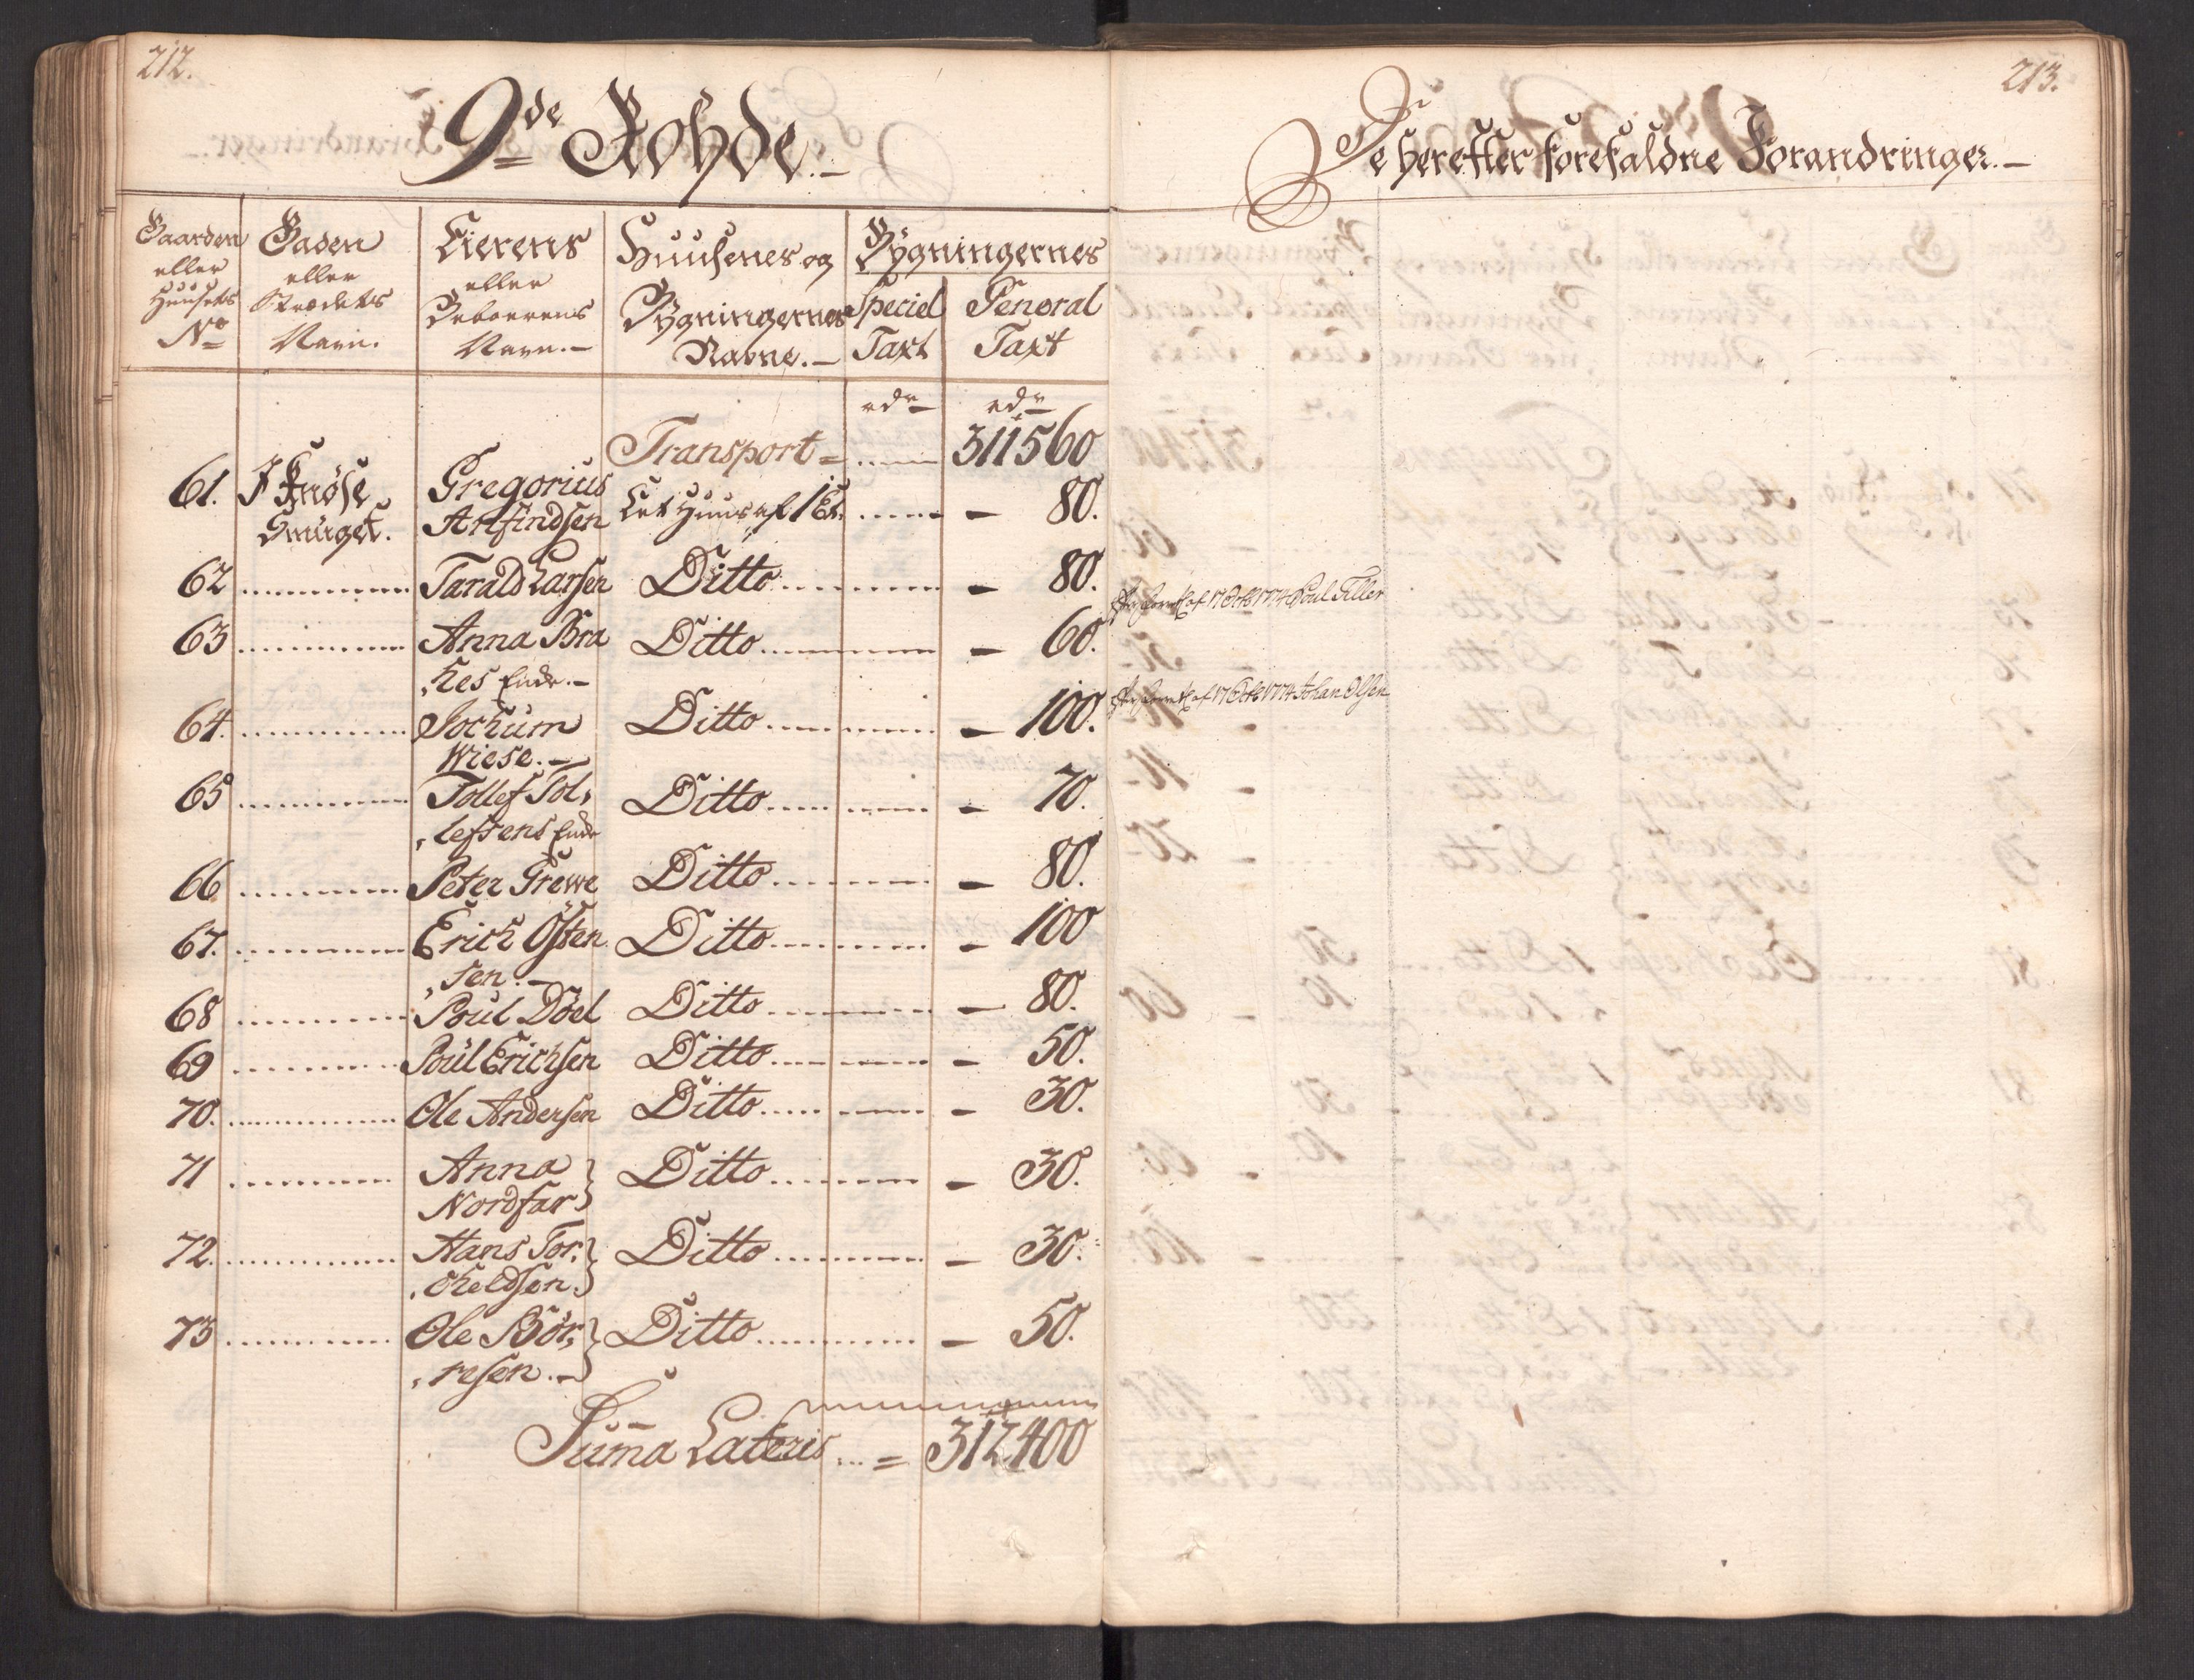 212.
9de Rohde.
Gaarden Gaden Eierens Huusenes og Bygningernes
eller eller eller
Huusets Strædets Beboerens Bygningernes Speciel General
No Navn. Navn. Navne. Taxt Taxt
rdr rdr
Transport = ...... 311560
61. I Knøse Gregorius
Smuget. Anfindsen Eet Huus af 1 Et. ...... - 80.
62 ............ Tarald Larsen Ditto ............ - 80.
63 ............ Anna Bra Ditto ............ - 60.
,kes Enke.
64. ............ Jochum Ditto ............ - 100.
Wiese.
65 ............ Tollef Tol, Ditto ............ - 70.
,lefsens Enke
66 ............ Peter Grewe Ditto ............ - 80.
67. ............ Erich Østen Ditto ............ - 100
,sen.
68 ............ Poul Döel Ditto ............ - 80.
69 ............ Poül Erichsen Ditto ............ - 50.
70. ............ Ole Andersen Ditto ............ - 30.
71 ............ Anna Ditto ............ - 30.
Nordfar
72. ............ Hans Tor, Ditto ............ - 30.
,cheldsen.
73 ............ Ole Bör, Ditto ............ - 50.
,resen.
Suma Lateris ... = 312400
213.
De herefter forefaldne Forandringer.
af 17 Octb 1774 Poul Tiller
af 17 Octb 1774 Johan Olsen